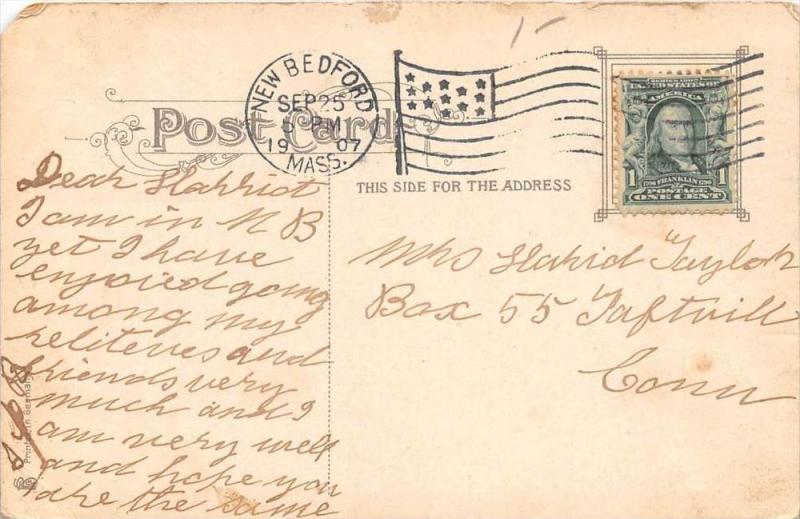 NEW BEDFORD
SEP 25
5 PM
1907
MASS.
Post Card
THIS SIDE FOR THE ADDRESS
UNITED STATES OF
AMERICA
1 1
1706 FRANKLIN 1790
POSTAGE
ONE CENT
Dear Harriot
I am in N B
yet I have
enjoied going
among my
reliteves and
friends very
much and I
am very well
and hope you
are the same
Mrs Harrid Taylor
Box 55 Taftvill
Conn
Printed in Germany